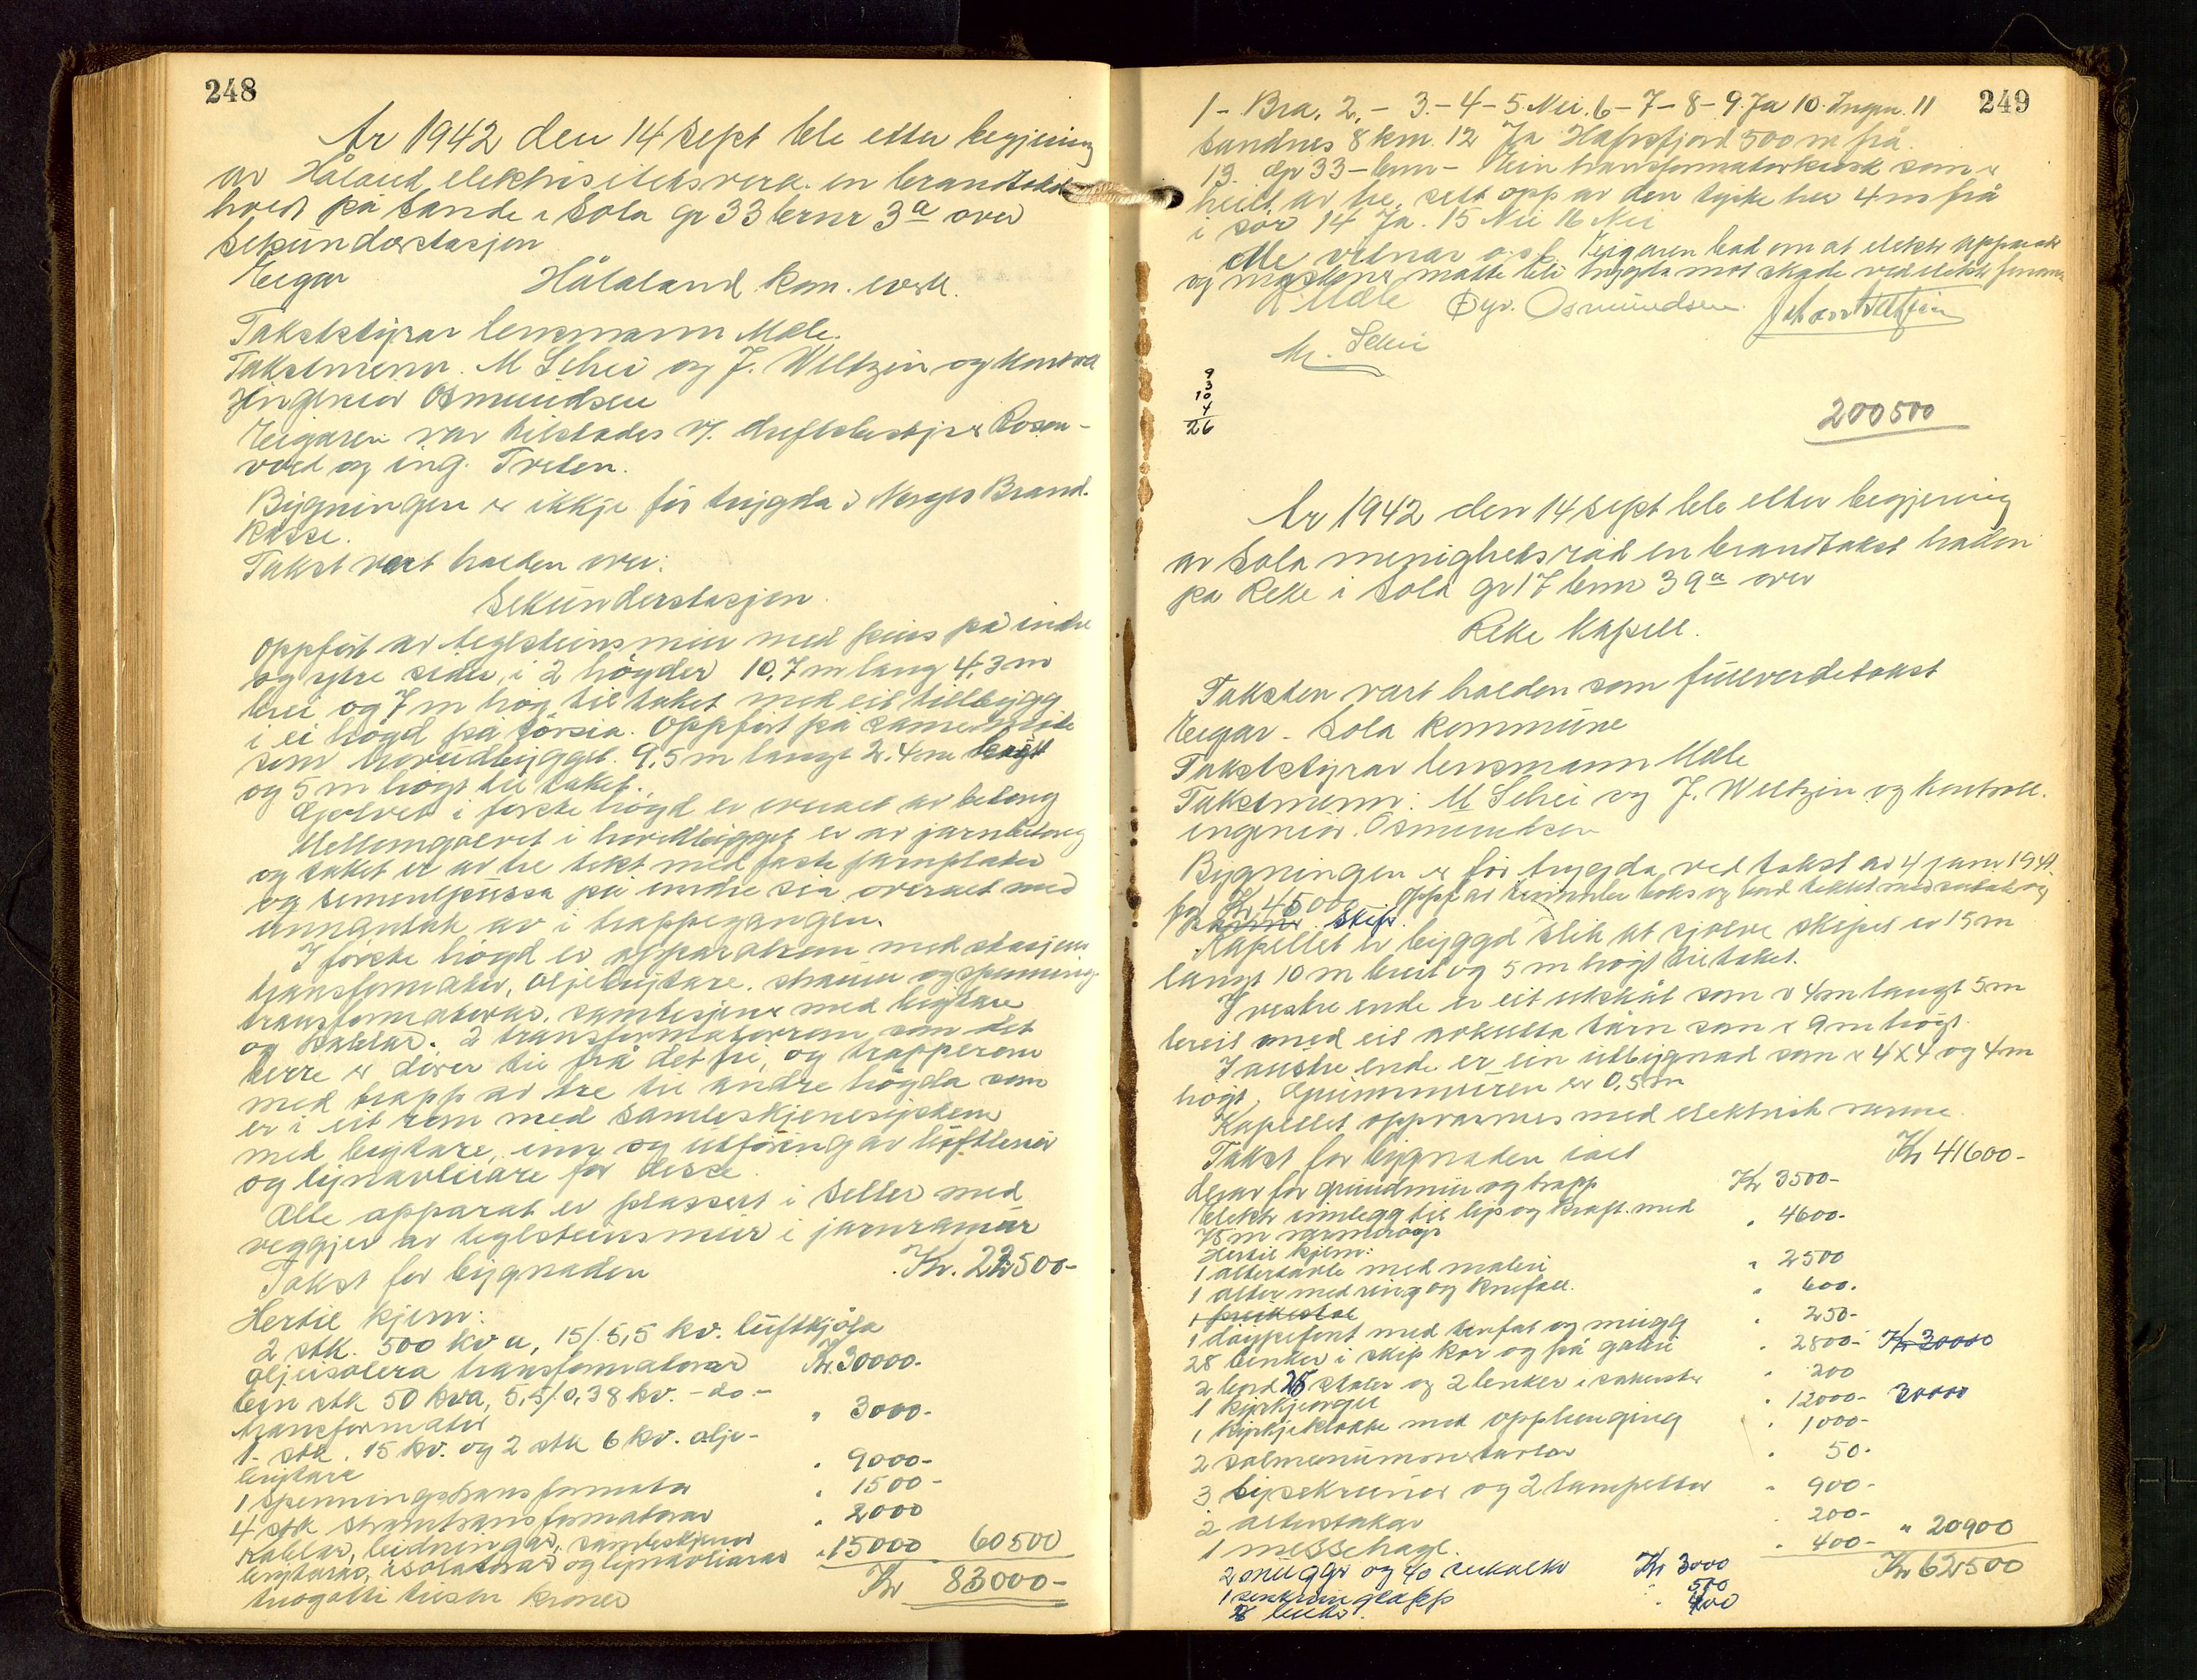 248
År 1942 den 14 sept ble etter begjæring
av Håland elektrisitetsverk en branntakst
holdt på Sande i Sola gr 33 bnr 3a over
Sekundærstasjon
Eigar Hålaland kom. everk.
Takststyrar lensmann Mæle.
Takstmenn. M Schei og J. Weltzin og kontroll
Ingeniør Osmundsen
Eigaren var tilstades v. driftsbestyrer Rosen-
vold og ing. Treten.
Bygningen er ikkje før trygda i Norges Brand-
kasse.
Takst vart halden over:
Sekunderstasjon.
Oppført av teglsteinsmur med puss på indre
og ytre sider, i 2 høgder 10,7 m lang 4,3 m
brei og 7 m høg til taket med eit tilbygg
i ei høgd på sørsia. Oppført på same måte
som hovudbygget. 9,5 m langt 2,4 m breitt
og 5 m høgt til taket.
Golvet i første høgd er overalt av betong
Mellomgolvet i hovedbygget er av jarnbetong
og taket er av tre tekt med faste jarnplater
og sementpussa på indre sia overalt med
unnatak av i trappegangen.
I første høgd er apparatrom med stasjons
transformator, oljebrytare, straum og spennings-
transformatorar, samleskjener med brytare
og kablar. 2 transformatorrom som det
berre er dører til frå det fri, og trapperom
med trapp av tre til andre høgda som
er i eit rom med samleskjenesystem
med brytare, inn og utføring av luftliner
og lynavleiare for desse.
Alle apparat er plassert i seller med
veggjer av teglsteinsmur i jarnramar
Takst for bygnaden Kr. 22500-
Hertil kjem:
2 stk. 500 kva, 15/5,5 kv. luftkjøla
oljeisolera transformatorar Kr. 30000-
Ein stk 50 kva, 5,5/0,38 kv. - do.-
transformator " 3000-
1 stk. 15 kv. og 2 stk 6 kv. olje-
brytare " 9000-
1 Spenningstransformator " 1500-
4 stk straumtransformatorar " 2000
Kablar, leidningar, samleskjener
brytarar, isolatorar og lynavleiarar " 15000 60500
Kr 83000-
treogåtti tusen kroner
249
1 - Bra. 2. - 3.- 4 - 5. Nei. 6 - 7 - 8 - 9. Ja 10. Ingen. 11
Sandnes 8 km. 12 Ja Hafrsfjord 500 m frå.
13. Gr 33 - bnr - Ein transformatorkiosk som er
heilt av tre, sett opp av den tyske her 4 m frå
i sør 14 Ja. 15 Nei 16 Nei
Alle vitnar o.s.b. Eigaren bad om at elektr apparater
og maskiner måtte bli trygda mot skade ved elektr fenomen
Mæle Gyr. Osmundsen. Johan Weltzin
M. Schei
9
3
10
4
26
200500
År 1942 den 14 sept ble etter begjæring
av Sola menighetsråd en branntakst halden
på Reke i Sola gr 17 bnr 39a over
Reke Kapell.
Taksten vart halden som fullverdetakst
Eigar - Sola kommune
Takststyrar lensmann Mæle
Takstmenn: M Schei og J. Weltzin og kontroll.
ingeniør. Osmundsen
Bygningen er før trygda ved takst av 4 janr 1941.
for Kr 45000 Oppf av tømmer boks og bord tekket med og
Skifr.
Kapellet er byggd slik at sjølve skipet er 15 m
langt 10 m breit og 5 m høgt til taket.
I vestre ende er eit utskåt som er 4 m langt 5 m
breit med eit avkutta tårn som er 9 m høgt.
I austre ende er ein utbygnad som er 4 x 4 og 4 m
høgt. Grunnmuren er 0,5 m
Kapellet oppvarmes med elektrisk varme.
Takst for bygnaden ialt Kr 41600-
Derav for grunnmur og trapp Kr 3500-
Elektr innlegg til lys og kraft med
75 m varmerøgr " 4600-
Hertil kjem:
1 altertavle med maleri " 2500
1 alter med ring og knefall. " 600.
1 preikestol
1 døypefont med tinfat og mugg " 250-
28 benker i skip kor og på galleri " 2800- Kr 20000
2 bord 25 stoler og 2 benker i sakristi " 200
1 kyrkjeorgel " 12000- 30000
1 kyrkjeklokke med opphenging " 1000-
2 salmenummertavlor " 50-
3 lysekruner og 2 lampettar " 900-
2 alterstakar " 200-
1 messehagl. " 400- " 20900
Kr 62500
2 mugger og 40 serkalkr Kr 3000
1 " 500
8 benker. " 400